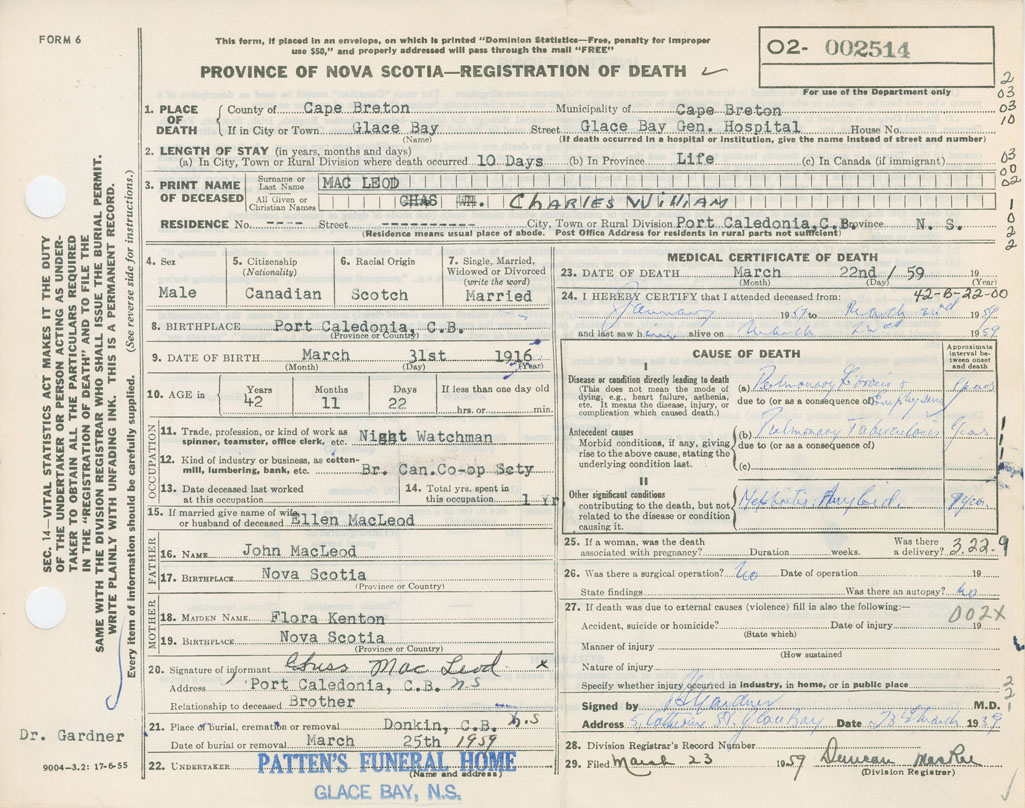 FORM 6
This form, if placed in an envelope, on which is printed "Dominion Statistics—Free, penalty for improper
use $50," and properly addressed will pass through the mail "FREE"
PROVINCE OF NOVA SCOTIA—REGISTRATION OF DEATH ✓
O2- 002514
For use of the Department only
2
03
03
10
03
00
02
1
0
2
2
SEC. 14—VITAL STATISTICS ACT MAKES IT THE DUTY
OF THE UNDERTAKER OR PERSON ACTING AS UNDER-
TAKER TO OBTAIN ALL THE PARTICULARS REQUIRED
IN THE "REGISTRATION OF DEATH" AND TO FILE THE
SAME WITH THE DIVISION REGISTRAR WHO SHALL ISSUE THE BURIAL PERMIT.
WRITE PLAINLY WITH UNFADING INK. THIS IS A PERMANENT RECORD.
Every item of information should be carefully supplied. (See reverse side for instructions.)
1. PLACE OF DEATH
County of Cape Breton Municipality of Cape Breton
If in City or Town Glace Bay Street Glace Bay Gen. Hospital House No.
(Name) (If death occurred in a hospital or institution, give the name instead of street and number)
2. LENGTH OF STAY (in years, months and days)
(a) In City, Town or Rural Division where death occurred 10 Days (b) In Province Life (c) In Canada (if immigrant)
3. PRINT NAME OF DECEASED
Surname or Last Name MAC LEOD
All Given or Christian Names CHAS WM. CHARLES WILLIAM
RESIDENCE No. ---- Street ---------- City, Town or Rural Division Port Caledonia, C.B. Province N. S.
(Residence means usual place of abode. Post Office Address for residents in rural parts not sufficient)
4. Sex
Male
5. Citizenship
(Nationality)
Canadian
6. Racial Origin
Scotch
7. Single, Married,
Widowed or Divorced
(write the word)
Married
8. BIRTHPLACE Port Caledonia, C.B.
(Province or Country)
9. DATE OF BIRTH March 31st 1916
(Month) (Day) (Year)
10. AGE in
Years
42
Months
11
Days
22
If less than one day old
hrs. or min.
OCCUPATION
11. Trade, profession, or kind of work as
spinner, teamster, office clerk, etc. Night Watchman
12. Kind of industry or business, as cotton-
mill, lumbering, bank, etc. Br. Can. Co-op Scty
13. Date deceased last worked
at this occupation
14. Total yrs. spent in
this occupation 1 yr
15. If married give name of wife
or husband of deceased Ellen MacLeod
FATHER
16. NAME John MacLeod
17. BIRTHPLACE Nova Scotia
(Province or Country)
MOTHER
18. MAIDEN NAME Flora Kenton
19. BIRTHPLACE Nova Scotia
(Province or Country)
20. Signature of informant Mac Leod x
Address Port Caledonia, C.B. N.S
Relationship to deceased Brother
21. Place of burial, cremation or removal Donkin, C.B. N.S
Date of burial or removal March 25th 1959
22. UNDERTAKER PATTEN'S FUNERAL HOME
(Name and address)
GLACE BAY, N.S.
Dr. Gardner
9004-3.2: 17-6-55
MEDICAL CERTIFICATE OF DEATH
23. DATE OF DEATH March 22nd / 59 19
(Month) (Day) (Year)
42-B-22-00
24. I HEREBY CERTIFY that I attended deceased from:
January 1959 to March 22nd 1959
and last saw him alive on March 22nd 1959
CAUSE OF DEATH
Approximate
interval be-
tween onset
and death
I
Disease or condition directly leading to death
(This does not mean the mode of
dying, e.g., heart failure, asthenia,
etc. It means the disease, injury, or
complication which caused death.)
(a) Pulmonary Fibrosis & years
due to (or as a consequence of) Emphysema
Antecedent causes
Morbid conditions, if any, giving
rise to the above cause, stating the
underlying condition last.
(b) Pulmonary Tuberculosis years
due to (or as a consequence of)
(c)
II
Other significant conditions
contributing to the death, but not
related to the disease or condition
causing it.
Amyloid.
25. If a woman, was the death
associated with pregnancy? Duration weeks.
Was there
a delivery?
3.22.9
26. Was there a surgical operation? No Date of operation 19
State findings Was there an autopsy? No
27. If death was due to external causes (violence) fill in also the following:— 002X
Accident, suicide or homicide? Date of injury 19
(State which)
Manner of injury
(How sustained
Nature of injury
Specify whether injury occurred in industry, in home, or in public place
Signed by Gardner M.D.
Address Catherine St. Glace Bay Date 23rd March 1959
2
2
1
28. Division Registrar's Record Number
29. Filed March 23 1959 Duncan MacRae
(Division Registrar)